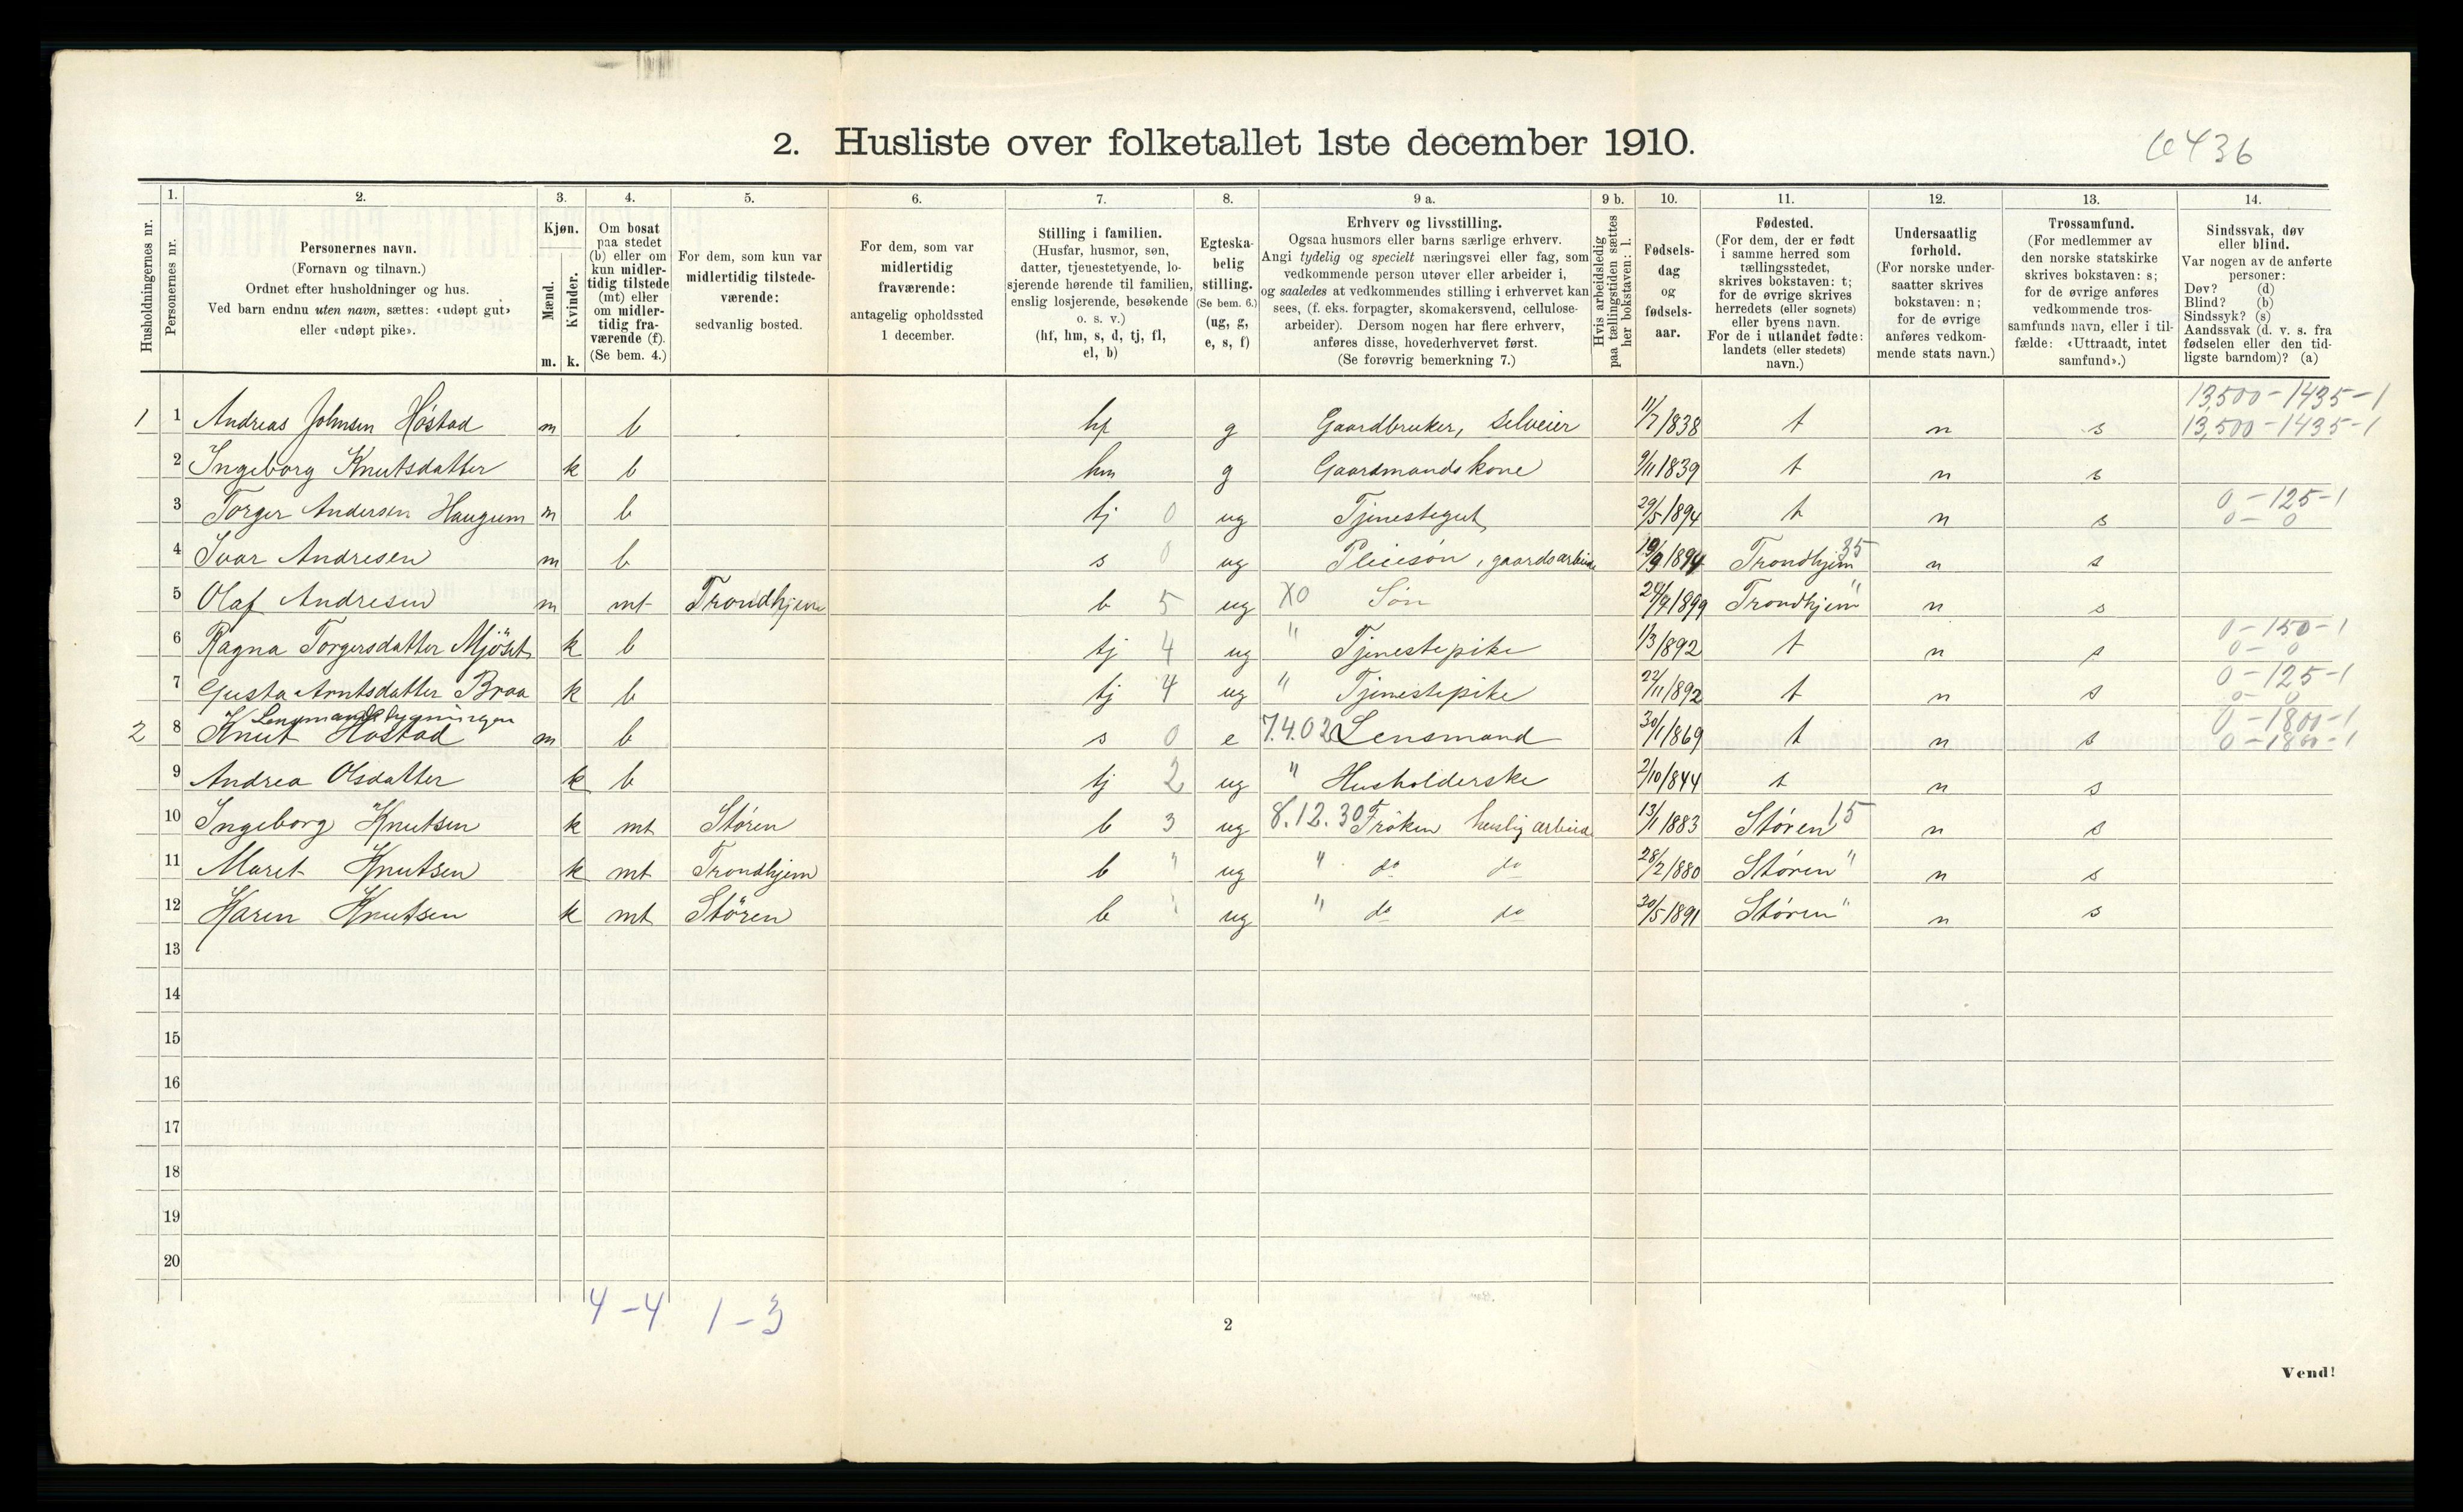 2. Husliste over folketallet 1ste december 1910.
6436
Husholdningernes nr.
1.
Personernes nr.
2.
Personernes navn.
(Fornavn og tilnavn.)
Ordnet efter husholdninger og hus.
Ved barn endnu uten navn, sættes: «udøpt gut»
eller «udøpt pike».
3.
Kjøn.
Mænd.
Kvinder.
m. k.
4.
Om bosat
paa stedet
(b) eller om
kun midler-
tidig tilstede
(mt) eller
om midler-
tidig fra-
værende (f).
(Se bem. 4.)
5.
For dem, som kun var
midlertidig tilstede-
værende:
sedvanlig bosted.
6.
For dem, som var
midlertidig
fraværende:
antagelig opholdssted
1 december.
7.
Stilling i familien.
(Husfar, husmor, søn,
datter, tjenestetyende, lo-
sjerende hørende til familien,
enslig losjerende, besøkende
o. s. v.)
(hf, hm, s, d, tj, fl,
el, b)
8.
Egteska-
belig
stilling.
(Se bem. 6.)
(ug, g,
e, s, f)
9 a.
Erhverv og livsstilling.
Ogsaa husmors eller barns særlige erhverv.
Angi tydelig og specielt næringsvei eller fag, som
vedkommende person utøver eller arbeider i,
og saaledes at vedkommendes stilling i erhvervet kan
sees, (f. eks. forpagter, skomakersvend, cellulose-
arbeider). Dersom nogen har flere erhverv,
anføres disse, hovederhvervet først.
(Se forøvrig bemerkning 7.)
9 b.
Hvis arbeidsledig
paa tællingstiden sættes
her bokstaven: l.
10.
Fødsels-
dag
og
fødsels-
aar.
11.
Fødested.
(For dem, der er født
i samme herred som
tællingsstedet,
skrives bokstaven: t;
for de øvrige skrives
herredets (eller sognets)
eller byens navn.
For de i utlandet fødte:
landets (eller stedets)
navn.)
12.
Undersaatlig
forhold.
(For norske under-
saatter skrives
bokstaven: n;
for de øvrige
anføres vedkom-
mende stats navn.)
13.
Trossamfund.
(For medlemmer av
den norske statskirke
skrives bokstaven: s;
for de øvrige anføres
vedkommende tros-
samfunds navn, eller i til-
fælde: «Uttraadt, intet
samfund».)
14.
Sindssvak, døv
eller blind.
Var nogen av de anførte
personer:
Døv? (d)
Blind? (b)
Sindssyk? (s)
Aandssvak (d. v. s. fra
fødselen eller den tid-
ligste barndom)? (a)
13,500-1435-1
1 1 Andreas Johnsen Höstad m b hf g Gaardbruker, selveier 11/7 1838 t n s 13,500-1435-1
2 Ingeborg Knutsdatter k b hm g Gaardmandskone 9/11 1839 t n s
0-125-1
3 Torger Andersen Haugum m b tj 0 ug Tjenestegut 29/5 1894 t n s 0-0
4 Ivar Andresen m b s 0 ug Pleiesön, gaardsarbeide 19/9 1894 Trondhjem 35 n s
5 Olaf Andresen m mt Trondhjem b 5 ug X0 Søn 24/9 1899 Trondhjem " n s
0-150-1
6 Ragna Torgersdatter Mjöset k b tj 4 ug " Tjenestepike 1/3 1892 t n s 0-0
0-125-1
7 Gusta Arntsdatter Braa k b tj 4 ug " Tjenestepike 22/11 1892 t n s 0-0
Lensmandsbygningen 0-1800-1
2 8 Knut Høstad m b s 0 e 7.4.02 Lensmand 30/1 1869 t n s 0-1800-1
9 Andrea Olsdatter k b tj 2 ug " Husholderske 2/10 1844 t n s
10 Ingeborg Knutsen k mt Støren b 3 ug 8.12.30 Frøken huslig arbeide 13/1 1883 Støren 15 n s
11 Maret Knutsen k mt Trondhjem b " ug " do do 28/2 1880 Støren " n s
12 Karen Knutsen k mt Støren b " ug " do do 30/5 1891 Støren " n s
13
14
15
16
17
18
19
20
4-4 1-3
2
Vend!